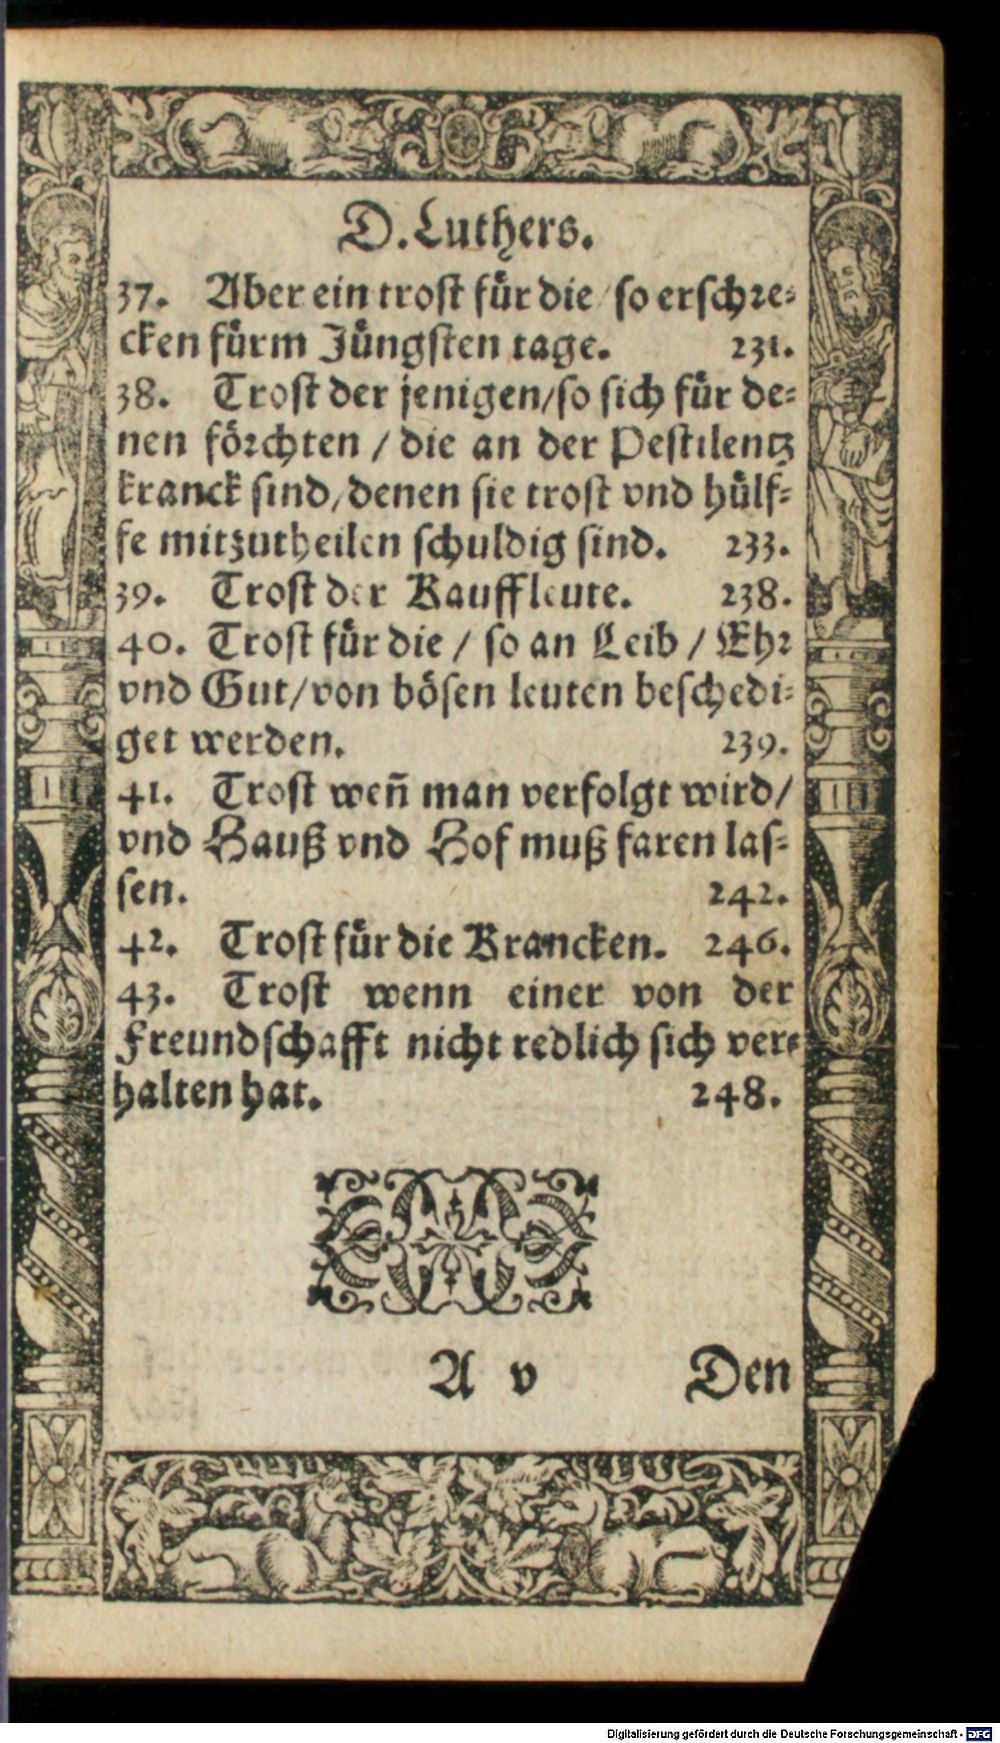 D. Luthers.
37. Aber ein trost für die / so erschre=
cken fürm Jüngsten tage. 231.
38. Trost der jenigen / so sich für de=
nen förchten / die an der Pestilentz
kranck sind / denen sie trost vnd hülf=
fe mitzutheilen schuldig sind. 233.
39. Trost der Kauffleute. 238.
40. Trost für die / so an Leib / Ehr
vnd Gut / von bösen leuten beschedi=
get werden. 239.
41. Trost weñ man verfolgt wird /
vnd Hauß vnd Hof muß faren las=
sen. 242.
42. Trost für die Krancken. 246.
43. Trost wenn einer von der
Freundschafft nicht redlich sich ver=
halten hat. 248.
A v Den
Digitalisierung gefördert durch die Deutsche Forschungsgemeinschaft - DFG